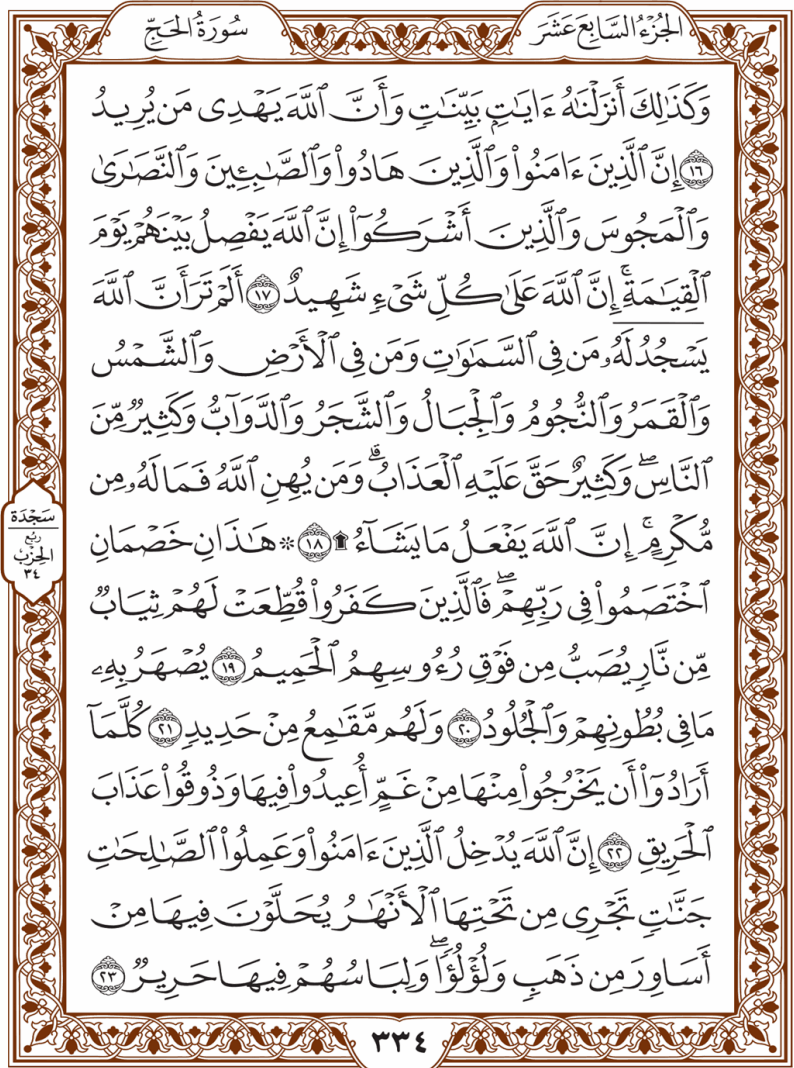 الجُزْءُ السَّابِعَ عَشَرَ
سُورَةُ الحَجِّ
وَكَذَٰلِكَ أَنزَلْنَٰهُ ءَايَٰتٍۭ بَيِّنَٰتٖ وَأَنَّ ٱللَّهَ يَهْدِى مَن يُرِيدُ
١٦ إِنَّ ٱلَّذِينَ ءَامَنُوا۟ وَٱلَّذِينَ هَادُوا۟ وَٱلصَّٰبِـِٔينَ وَٱلنَّصَٰرَىٰ
وَٱلْمَجُوسَ وَٱلَّذِينَ أَشْرَكُوٓا۟ إِنَّ ٱللَّهَ يَفْصِلُ بَيْنَهُمْ يَوْمَ
ٱلْقِيَٰمَةِۚ إِنَّ ٱللَّهَ عَلَىٰ كُلِّ شَىْءٖ شَهِيدٌ ١٧ أَلَمْ تَرَ أَنَّ ٱللَّهَ
يَسْجُدُ لَهُۥ مَن فِى ٱلسَّمَٰوَٰتِ وَمَن فِى ٱلْأَرْضِ وَٱلشَّمْسُ
وَٱلْقَمَرُ وَٱلنُّجُومُ وَٱلْجِبَالُ وَٱلشَّجَرُ وَٱلدَّوَآبُّ وَكَثِيرٞ مِّنَ
ٱلنَّاسِۖ وَكَثِيرٌ حَقَّ عَلَيْهِ ٱلْعَذَابُۗ وَمَن يُهِنِ ٱللَّهُ فَمَا لَهُۥ مِن
مُّكْرِمٍۚ إِنَّ ٱللَّهَ يَفْعَلُ مَا يَشَآءُ ۩ ١٨ ۞ هَٰذَانِ خَصْمَانِ
ٱخْتَصَمُوا۟ فِى رَبِّهِمْۖ فَٱلَّذِينَ كَفَرُوا۟ قُطِّعَتْ لَهُمْ ثِيَابٞ
مِّن نَّارٖ يُصَبُّ مِن فَوْقِ رُءُوسِهِمُ ٱلْحَمِيمُ ١٩ يُصْهَرُ بِهِۦ
مَا فِى بُطُونِهِمْ وَٱلْجُلُودُ ٢٠ وَلَهُم مَّقَٰمِعُ مِنْ حَدِيدٖ ٢١ كُلَّمَآ
أَرَادُوٓا۟ أَن يَخْرُجُوا۟ مِنْهَا مِنْ غَمٍّ أُعِيدُوا۟ فِيهَا وَذُوقُوا۟ عَذَابَ
ٱلْحَرِيقِ ٢٢ إِنَّ ٱللَّهَ يُدْخِلُ ٱلَّذِينَ ءَامَنُوا۟ وَعَمِلُوا۟ ٱلصَّٰلِحَٰتِ
جَنَّٰتٖ تَجْرِى مِن تَحْتِهَا ٱلْأَنْهَٰرُ يُحَلَّوْنَ فِيهَا مِنْ
أَسَاوِرَ مِن ذَهَبٖ وَلُؤْلُؤٗاۖ وَلِبَاسُهُمْ فِيهَا حَرِيرٞ ٢٣
سَجْدَة
رُبع
الحِزْب
٣٤
٣٣٤